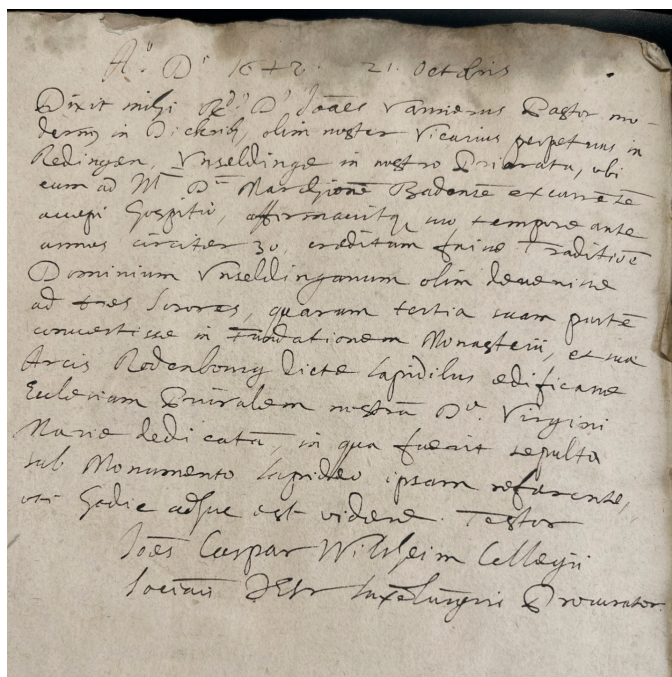 Aº Dⁱ 1642. 21. Octobris
Dixit mihi Rᵈᵘˢ Dˢ Joāes Vannerus Pastor mo-
dernꝯ in Dickrich, olim noster Vicarius perpetuus in
Redingen, Vnseldingæ in nostro Prioratu, ubi
eum ad Mᵐ Dᵐ Marchionē Badensē excurrētē
accepi hospitio, affirmavitqꝫ suo tempore ante
annos circiter 30. creditum fuisse Traditiōe
Dominium Vnseldinganum olim devenisse
ad tres Sorores, quarum tertia suam partē
convertisse in Fundationem Monasterii, et sua
Arcis Rodenbourg dictæ lapidibus ædificasse
Ecclesiam Prioralem nostrā Dᵉ. Virgini
Mariæ dedicatā, in qua fuerit sepulta
sub Monumento lapideo ipsam referente,
uti hodie adhuc est videre. Testor
Joēs Caspar Wiltheim Collegii
Socītis Jesu Luxēburgēsis Procurator.